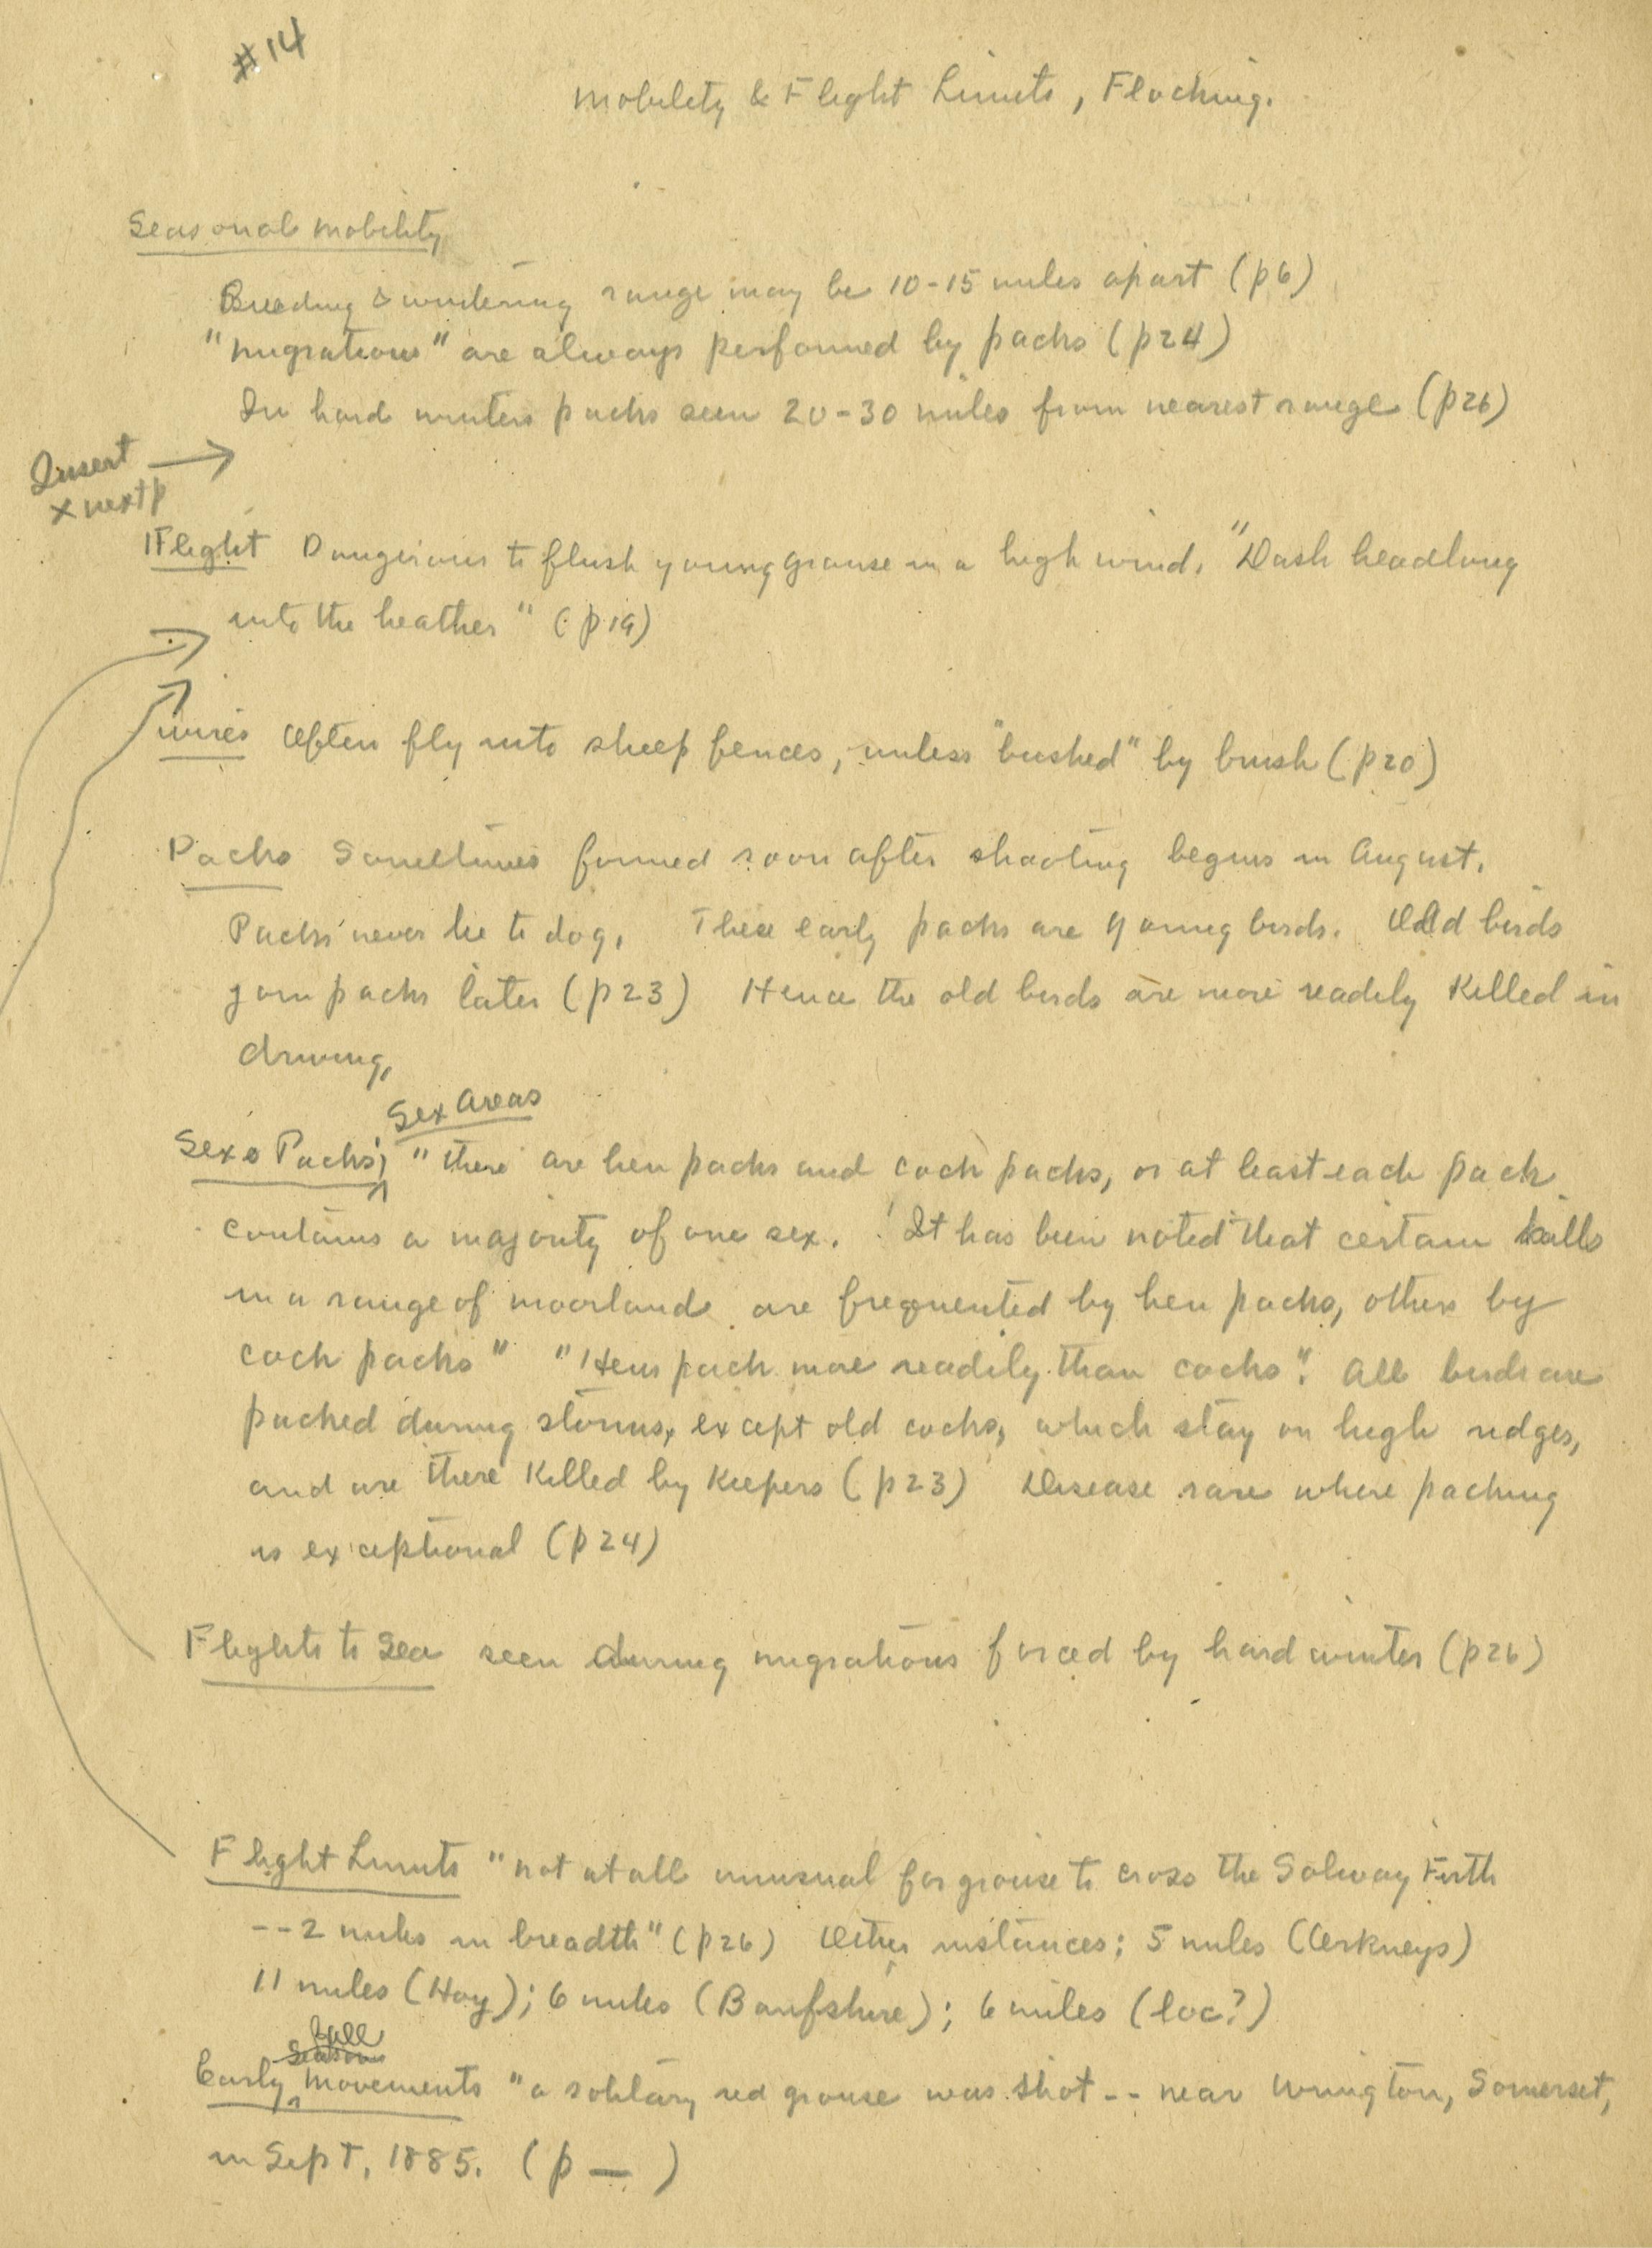 #14
Mobility & Flight Limits, Flocking.
Seasonal Mobility
Breeding & wintering range may be 10-15 miles apart (p6)
"Migrations" are always performed by packs (p24)
In hard winters packs seen 20-30 miles from nearest range (p26)
Insert
x next p
Flight Dangerous to flush young grouse in a high wind. "Dash headlong
into the heather" (p19)
Wires Often fly into sheep fences, unless "bushed" by brush (p20)
Packs Sometimes formed soon after shooting begins in August.
Packs never lie to dog. These early packs are young birds. Old birds
join packs later (p23) Hence the old birds are more readily killed in
driving.
Sex Areas
Sex & Packs; "there are hen packs and cock packs, or at least each pack
contains a majority of one sex. It has been noted that certain hills
in a range of moorland are frequented by hen packs, others by
cock packs" "Hens pack more readily than cocks". All birds are
packed during storms, except old cocks, which stay on high ridges,
and are there killed by keepers (p23) Disease rare where packing
is exceptional (p24)
Flights to Sea seen during migrations forced by hard winter (p26)
Flight Limits "not at all unusual for grouse to cross the Solway Firth
--2 miles in breadth" (p26) Other instances; 5 miles (Orkneys)
11 miles (Hoy); 6 miles (Banfshire); 6 miles (loc?)
Fall
Season
Early Movements "a solitary red grouse was shot -- near Wrington, Somerset,
in Sept, 1885. (p — )